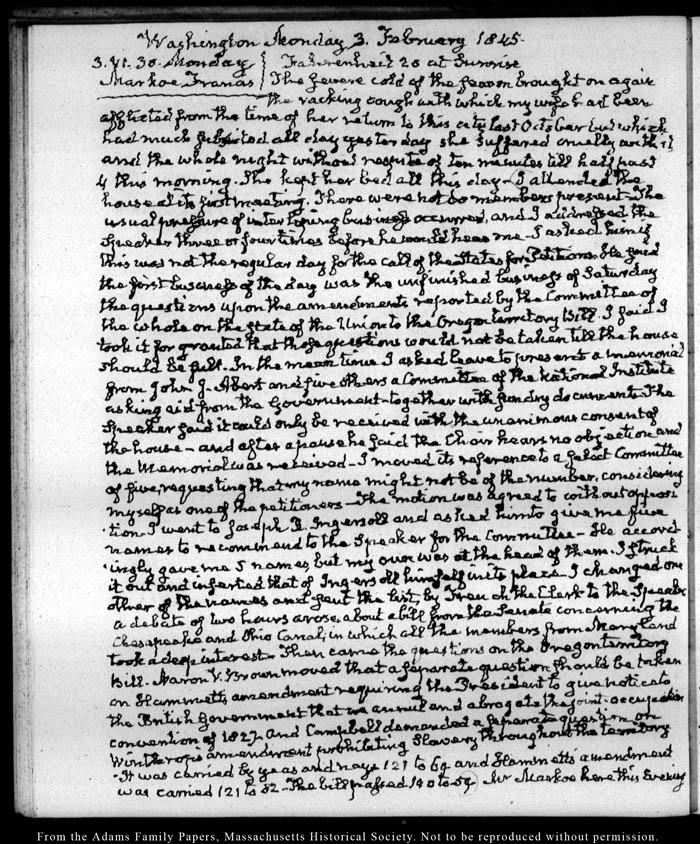 Washington Monday 3. February 1845.
3. VI. 30. Monday Fahrenheit 20 at Sunrise
Markoe Francis The severe cold of the season brought on again
the racking cough with which my wife had been
afflicted from the time of her return to this city last October but which
had much subsided all day yesterday she suffered cruelly with it
and the whole night without respite of ten minutes till half past
4 this morning. She kept her bed all this day. I attended the
house at its first meeting. There were not 20 members present. The
usual pressure of interloping business occurred, and I addressed the
Speaker three or four times before he would hear me. I asked him if
this was not the regular day for the call of the States for Petitions. He said
the first business of the day was the unfinished business of Saturday
the questions upon the amendments reported by the Committee of
the whole on the state of the Union to the Oregon territory Bill. I said I
took it for granted that those questions would not be taken till the house
should be full. In the mean time I asked leave to present a memorial
from John J. Abert and five others a Committee of the National Institute
asking aid from the Government together with sundry documents. The
Speaker said it could only be received with the unanimous consent of
the house - and after a pause he said the Chair hears no objection and
the Memorial was received - I moved its reference to a Select Committee
of five, requesting that my name might not be of the number, considering
myself as one of the petitioners - The motion was agreed to without opposi
tion. I went to Joseph R. Ingersoll and asked him to give me five
names to recommend to the Speaker for the Committee - He accord
ingly gave me 5 names, but my own was at the head of them. I struck
it out and inserted that of Ingersoll himself in its place. I changed one
other of the names and sent the list, by French the Clerk to the Speaker
a debate of two hours arose, about a bill from the Senate concerning the
Chesapeake and Ohio Canal, in which all the members from Maryland
took a deep interest. Then came the questions on the Oregon territory
Bill. Aaron V. Brown moved that a separate question should be taken
on Hammett's amendment requiring the President to give notice to
the British Government that we annul and abrogate the joint-occupation
convention of 1827. And Campbell demanded a separate question on
Winthrop's amendment prohibiting Slavery throughout the territory
It was carried by yeas and nays 121 to 69 and Hammett's amendment
was carried 121 to 82 - The bill passed 140 to 59. Mr Markoe here this Evening
From the Adams Family Papers, Massachusetts Historical Society. Not to be reproduced without permission.